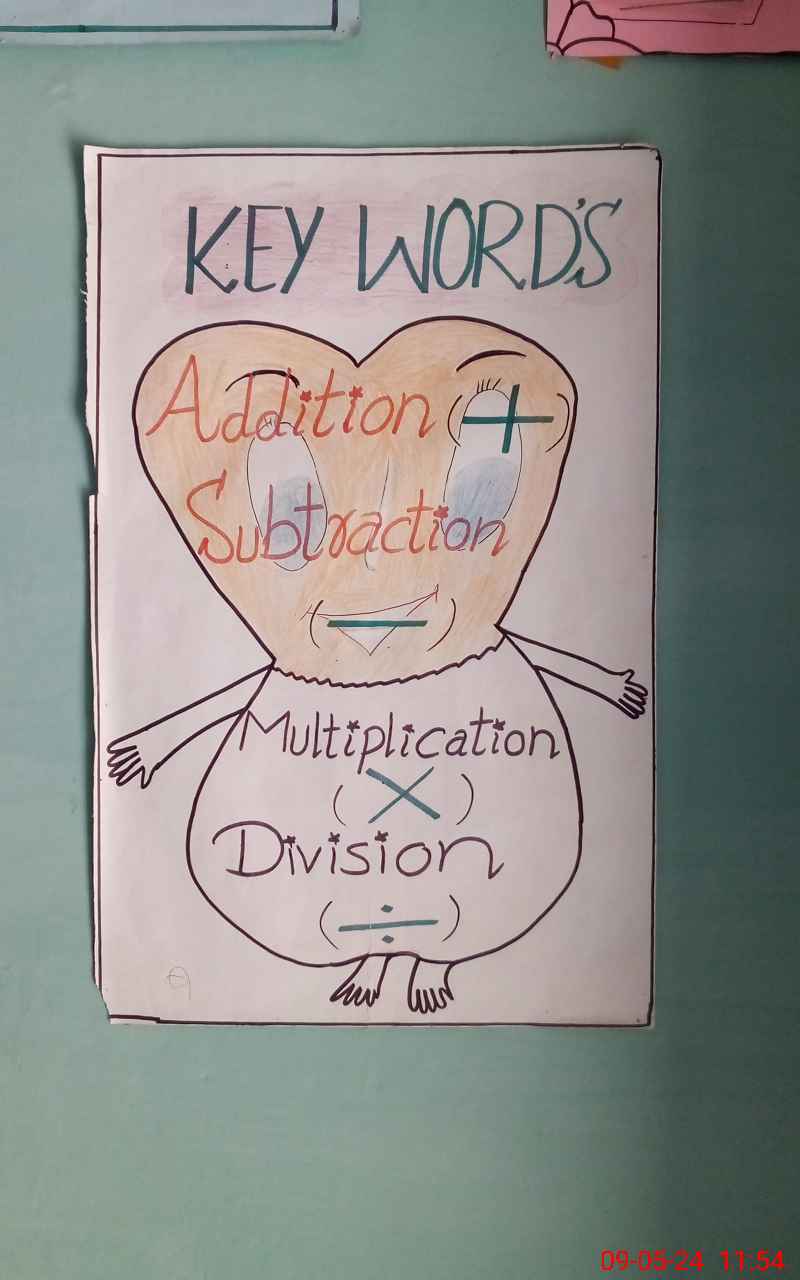 KEY WORD'S
Addition (+)
Subtraction
(−)
Multiplication
(×)
Division
(÷)
09-05-24 11:54